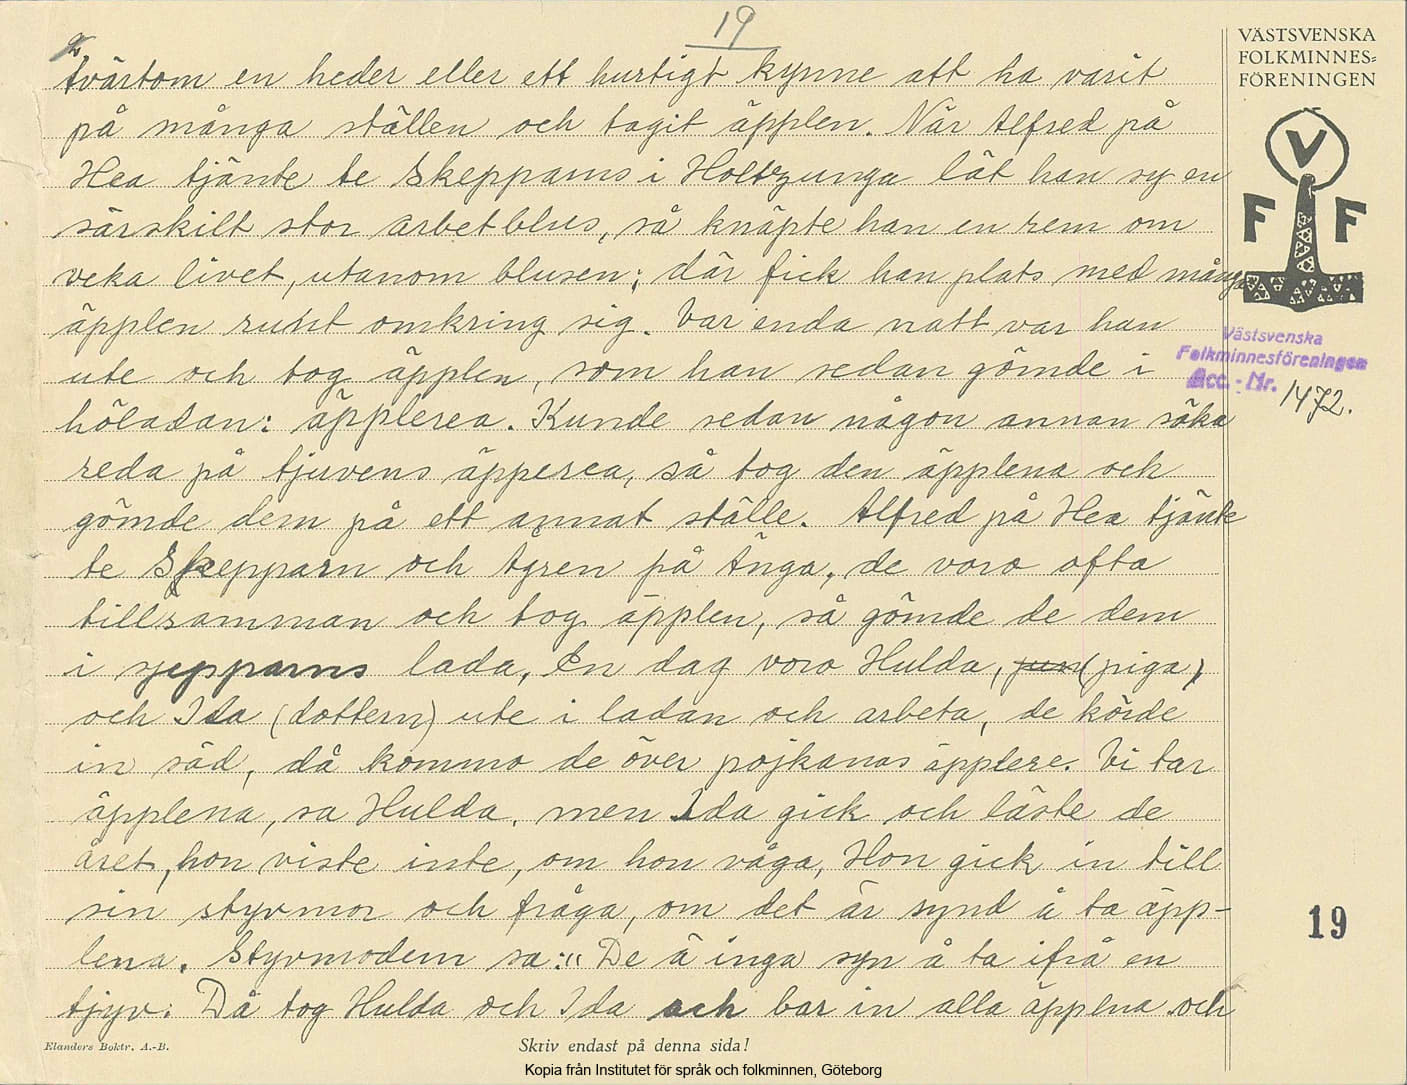 19
tvärtom en heder eller ett hurtigt kynne att ha varit
på många ställen och tagit äpplen. När Alfred på
Hea tjänte te Skepparns i Holtzunga lät han sy en
särskilt stor arbetblus, så knäpte han en rem om
veka livet, utanom blusen; där fick han plats med många
äpplen runt omkring sig. Var enda natt var han
ute och tog äpplen, som han sedan gömde i
höladan: äpplerea. Kunde sedan någon annan söka
reda på tjuvens äpperea, så tog den äpplena och
gömde dem på ett annat ställe. Alfred på Hea tjänte
te Skepparn och Agren på Änga, de voro ofta
tillsamman och tog äpplen, så gömde de dem
i sjepparns lada, En dag voro Hulda, (piga)
och Ida (dottern) ute i ladan och arbeta, de körde
in säd, då kommo de över pojkanas äpplere. Vi tar
äpplena, sa Hulda, men Ida gick och läste de
året, hon viste inte, om hon våga, Hon gick in till
sin styvmor och fråga, om det är synd å ta äpp-
lena. Styvmodern sa: "De ä inga syn å ta ifrå en
tjyv: Då tog Hulda och Ida och bar in alla äpplena och
Elanders Boktr. A.-B.
Skriv endast på denna sida!
Kopia från Institutet för språk och folkminnen, Göteborg
VÄSTSVENSKA
FOLKMINNES=
FÖRENINGEN
V
F F
Västsvenska
Folkminnesföreningen
Acc. - Nr. 1472.
19